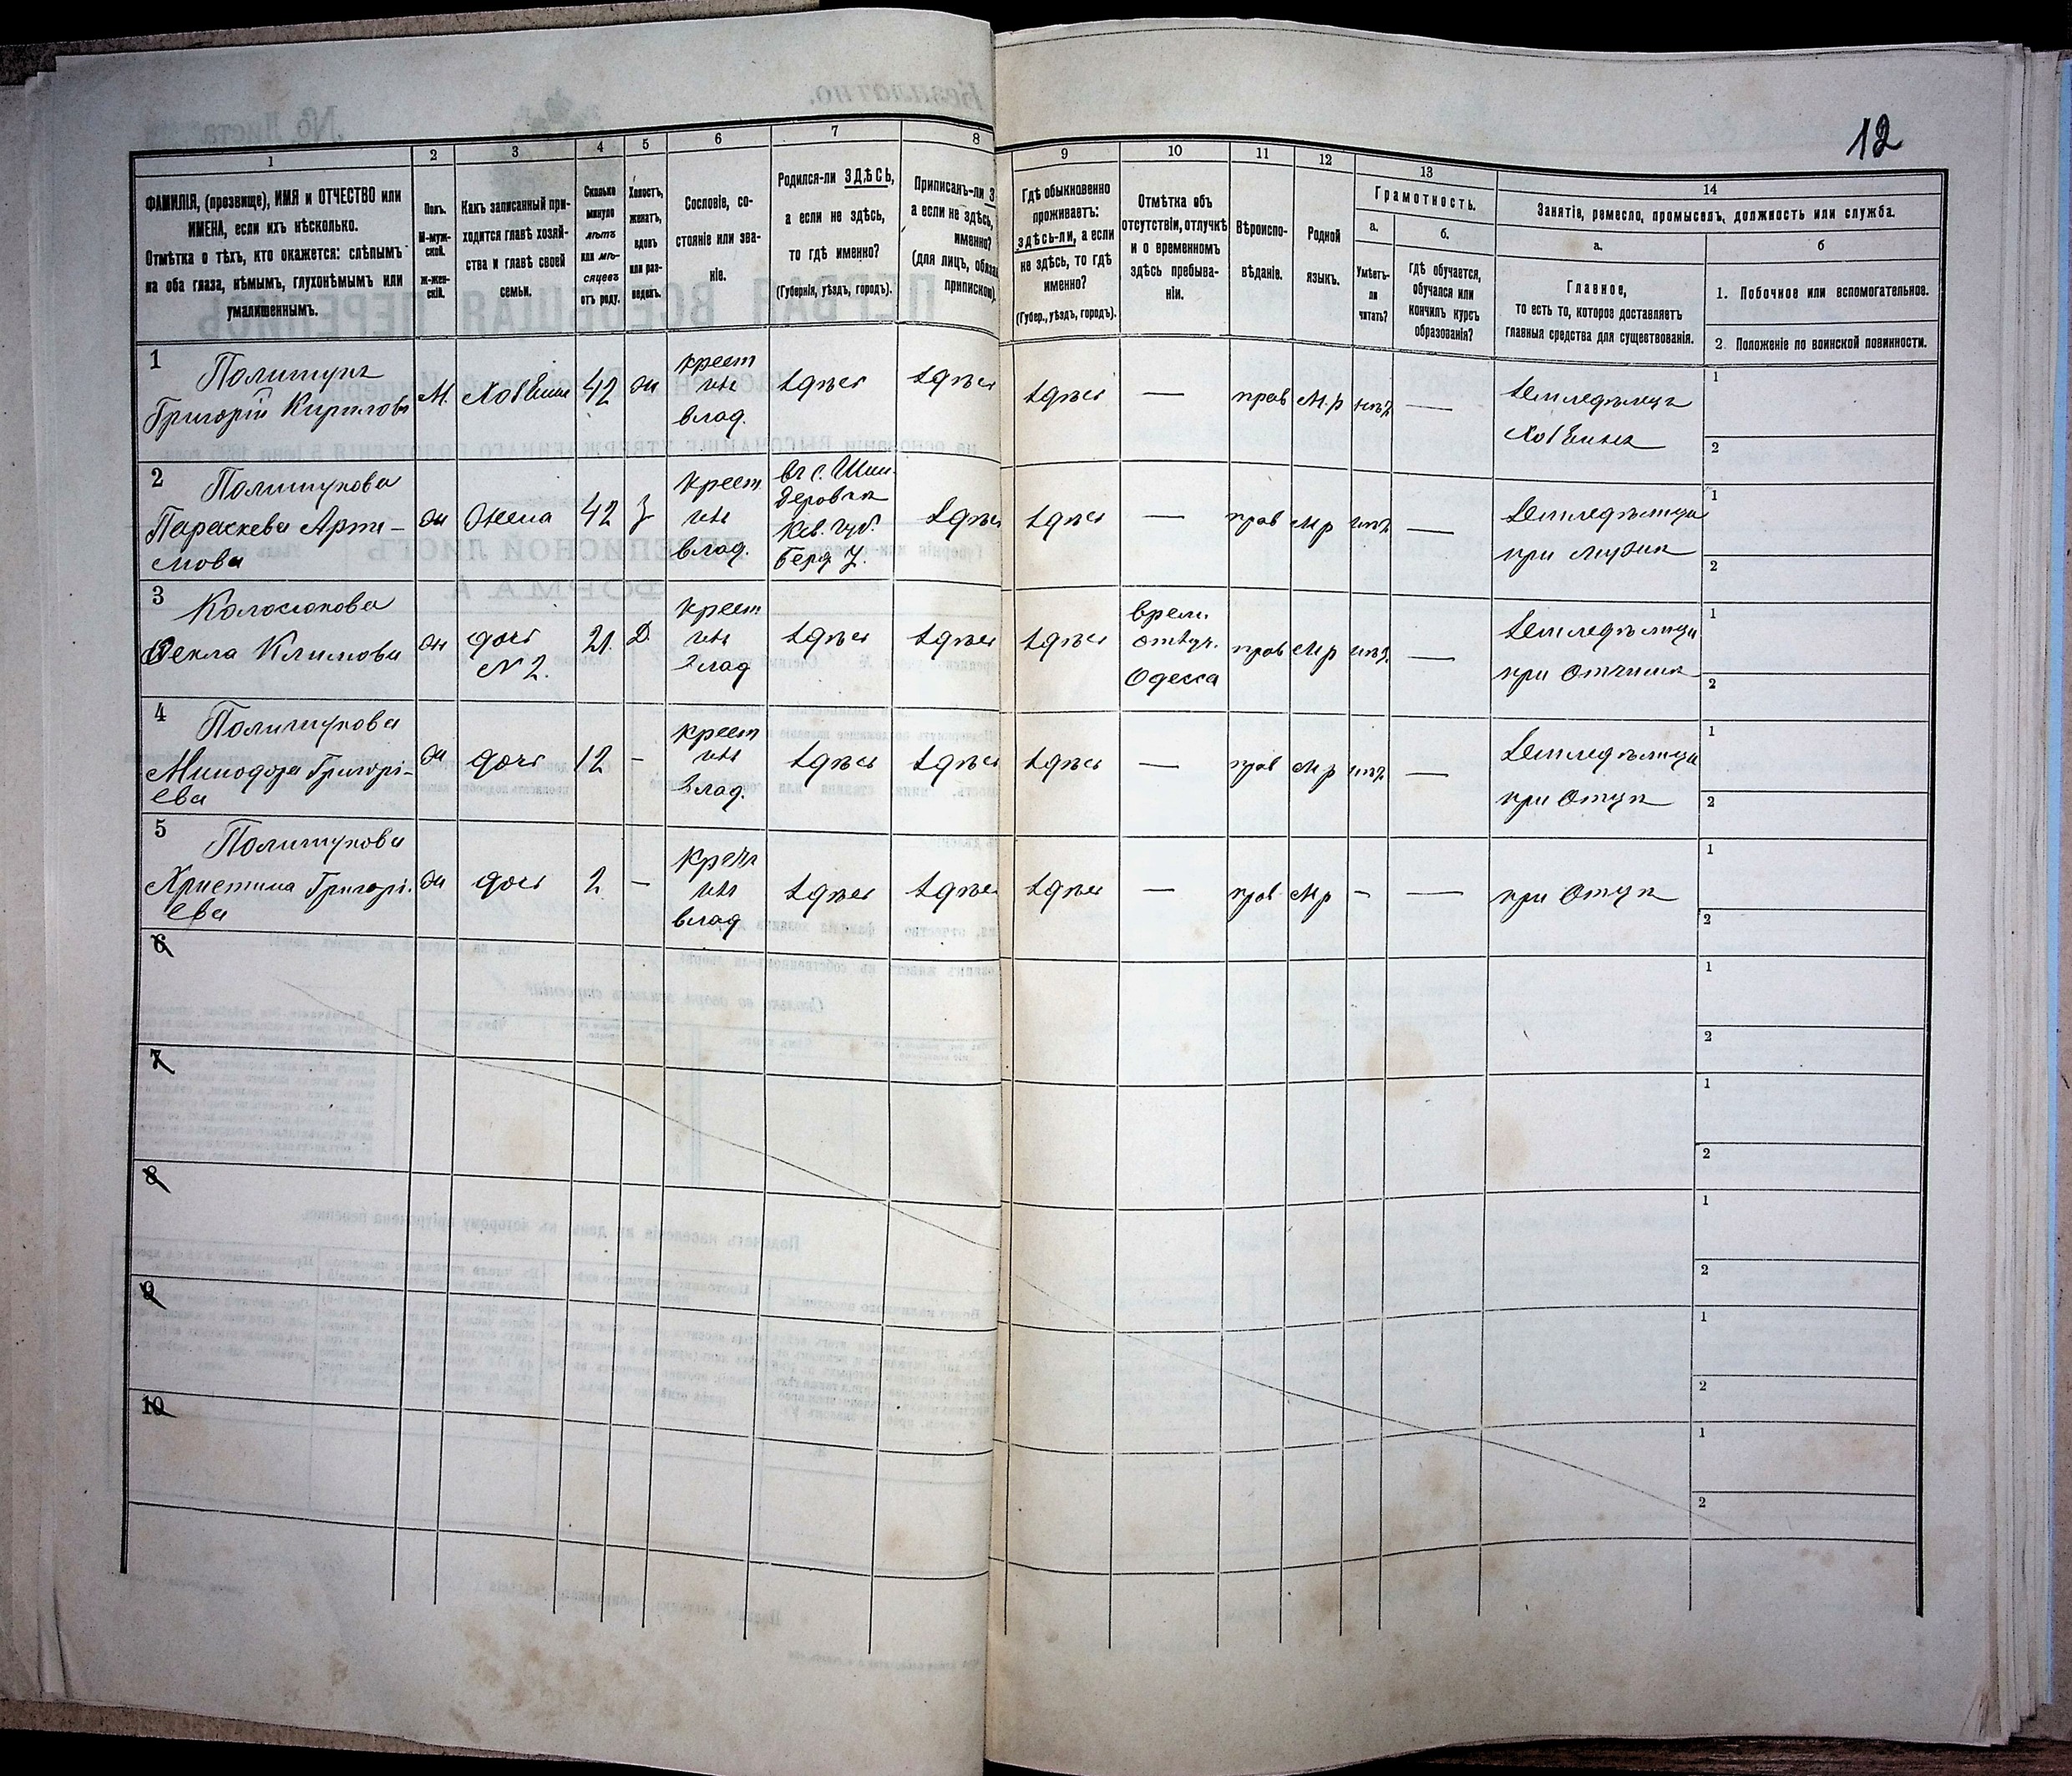 12
1
2
3
4
5
6
7
8
9
10
11
12
13
14
ФАМИЛІЯ, (прозвище), ИМЯ и ОТЧЕСТВО или
ИМЕНА, если ихъ нѣсколько.
Отмѣтка о тѣхъ, кто окажется: слѣпымъ
на оба глаза, нѣмымъ, глухонѣмымъ или
умалишеннымъ.
Полъ.
М-муж-
ской.
Ж-жен-
скій.
Какъ записанный при-
ходится главѣ хозяй-
ства и главѣ своей
семьи.
Сколько
минуло
лѣтъ
или мѣ-
сяцевъ
отъ роду.
Холостъ,
женатъ,
вдовъ
или раз-
веденъ.
Сословіе, со-
стояніе или зва-
ніе.
Родился-ли ЗДѢСЬ,
а если не здѣсь,
то гдѣ именно?
(Губернія, уѣздъ, городъ).
Приписанъ-ли З
а если не здѣсь,
именно?
(для лицъ, обяза
припискою).
Гдѣ обыкновенно
проживаетъ:
здѣсь-ли, а если
не здѣсь, то гдѣ
именно?
(Губер., уѣздъ, городъ).
Отмѣтка объ
отсутствіи, отлучкѣ
и о временномъ
здѣсь пребыва-
ніи.
Вѣроиспо-
вѣданіе.
Родной
языкъ.
Грамотность.
а.
Умѣетъ-
ли
читать?
б.
Гдѣ обучается,
обучался или
кончилъ курсъ
образованія?
Занятіе, ремесло, промыселъ, должность или служба.
а.
Главное,
то есть то, которое доставляетъ
главныя средства для существованія.
б
1. Побочное или вспомогательное.
2. Положеніе по воинской повинности.
1
Полищукъ
Григорій Кириловъ
М.
Хозяинъ
42
ж
крест
изъ
влад.
здѣсь
здѣсь
здѣсь
—
прав
М.р
нѣтъ
—
земледѣлецъ
хозяинъ
1
2
2
Полищукова
Параскева Арте-
мова
ж
жена
42
З
крест
изъ
влад.
въ с.
Кіев. губ.
Берд. у.
здѣсь
здѣсь
—
прав
м р
нѣтъ
—
земледѣлица
при мужѣ
1
2
3
Колосюкова
Фекла Климова
ж
дочь
N 2.
21.
Д
крест
изъ
влад
здѣсь
здѣсь
здѣсь
врем.
отлуч.
Одесса
прав
м р
нѣтъ
—
земледѣлица
при отчимѣ
1
2
4
Полищукова
Минодора Григорі-
ева
ж
дочь
12
-
крест
изъ
влад.
здѣсь
здѣсь
здѣсь
—
прав
м р
нѣтъ
—
земледѣлица
при отцѣ
1
2
5
Полищукова
Христина Григорі-
ева
ж
дочь
2
—
крест
изъ
влад
здѣсь
здѣсь
здѣсь
—
прав
м р
-
—
при отцѣ
1
2
6
1
2
7
1
2
8
1
2
9
1
2
10
1
2